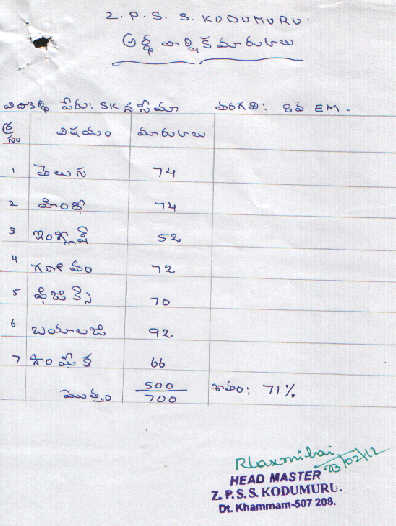 Z. P. S. S. KODUMURU.
అర్థ వార్షిక మారుకులు
విద్యార్థి పేరు: SK నసీమా తరగతి: 8వ EM.
క్ర సం విషయం మారుకులు
1 తెలుగు 74
2 హిందీ 74
3 ఇంగ్లీష్ 52
4 గణితం 72
5 ఫిజిక్స్ 70
6 బయాలజి 92
7 సాంఘీక 66
మొత్తం 500/700 శాతం: 71%
RLaxmibai
23/02/12
HEAD MASTER
Z. P. S. S. KODUMURU.
Dt. Khammam-507 208.